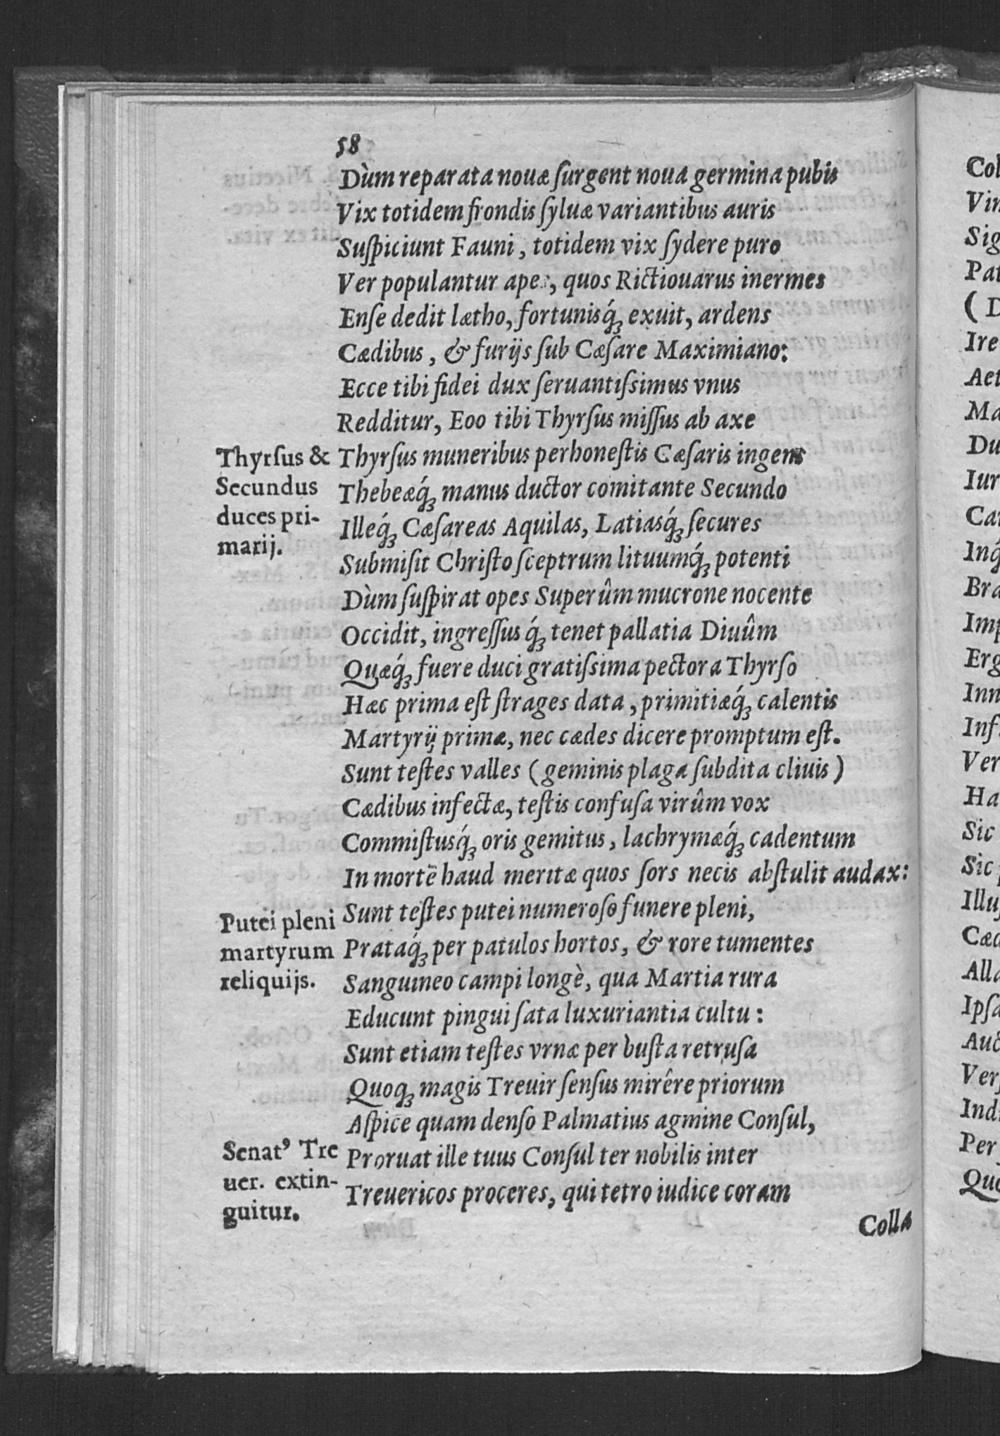 58
Dùm reparata nouæ ſurgent noua germina pubis
Vix totidem frondis ſyluæ variantibus auris
Suſpiciunt Fauni, totidem vix ſydere puro
Ver populantur apes, quos Rictiouarus inermes
Enſe dedit lætho, fortunisq́; exuit, ardens
Cædibus, & furijs ſub Cæſare Maximiano:
Ecce tibi fidei dux ſeruantiſsimus vnus
Redditur, Eoo tibi Thyrſus miſſus ab axe
Thyrſus &
Secundus
duces pri-
marij.
Thyrſus muneribus perhoneſtis Cæſaris ingens
Thebeæq́; manus ductor comitante Secundo
Illeq́; Cæſareas Aquilas, Latiasq́; ſecures
Submiſit Chriſto ſceptrum lituumq́; potenti
Dùm ſuſpirat opes Superûm mucrone nocente
Occidit, ingreſſus q́; tenet pallatia Diuûm
Quæq́; fuere duci gratiſsima pectora Thyrſo
Hæc prima eſt ſtrages data, primitiæq́; calentis
Martyrij primæ, nec cædes dicere promptum eſt.
Sunt teſtes valles (geminis plaga ſubdita cliuis)
Cædibus infectæ, teſtis confuſa virûm vox
Commiſtusq́; oris gemitus, lachrymæq́; cadentum
In mortē haud meritæ quos ſors necis abſtulit audax:
Putei pleni
martyrum
reliquijs.
Sunt teſtes putei numeroſo funere pleni,
Prataq́; per patulos hortos, & rore tumentes
Sanguineo campi longè, qua Martia rura
Educunt pingui ſata luxuriantia cultu:
Sunt etiam teſtes vrnæ per buſta retruſa
Quoq; magis Treuir ſenſus mirêre priorum
Aſpice quam denſo Palmatius agmine Conſul,
Senatꝰ Tre
uer. extin-
guitur.
Proruat ille tuus Conſul ter nobilis inter
Treuericos proceres, qui tetro iudice coram
Colla
Col
Vin
Sig
Pat
(D
Ire
Aet
Ma
Du
Iur
Car
Inq́
Bra
Imp
Erg
Inn
Inf
Ver
Ha
Sic
Sic
Illuſ
Cæd
Alla
Ipſa
Auc
Verſ
Indi
Per
Quo